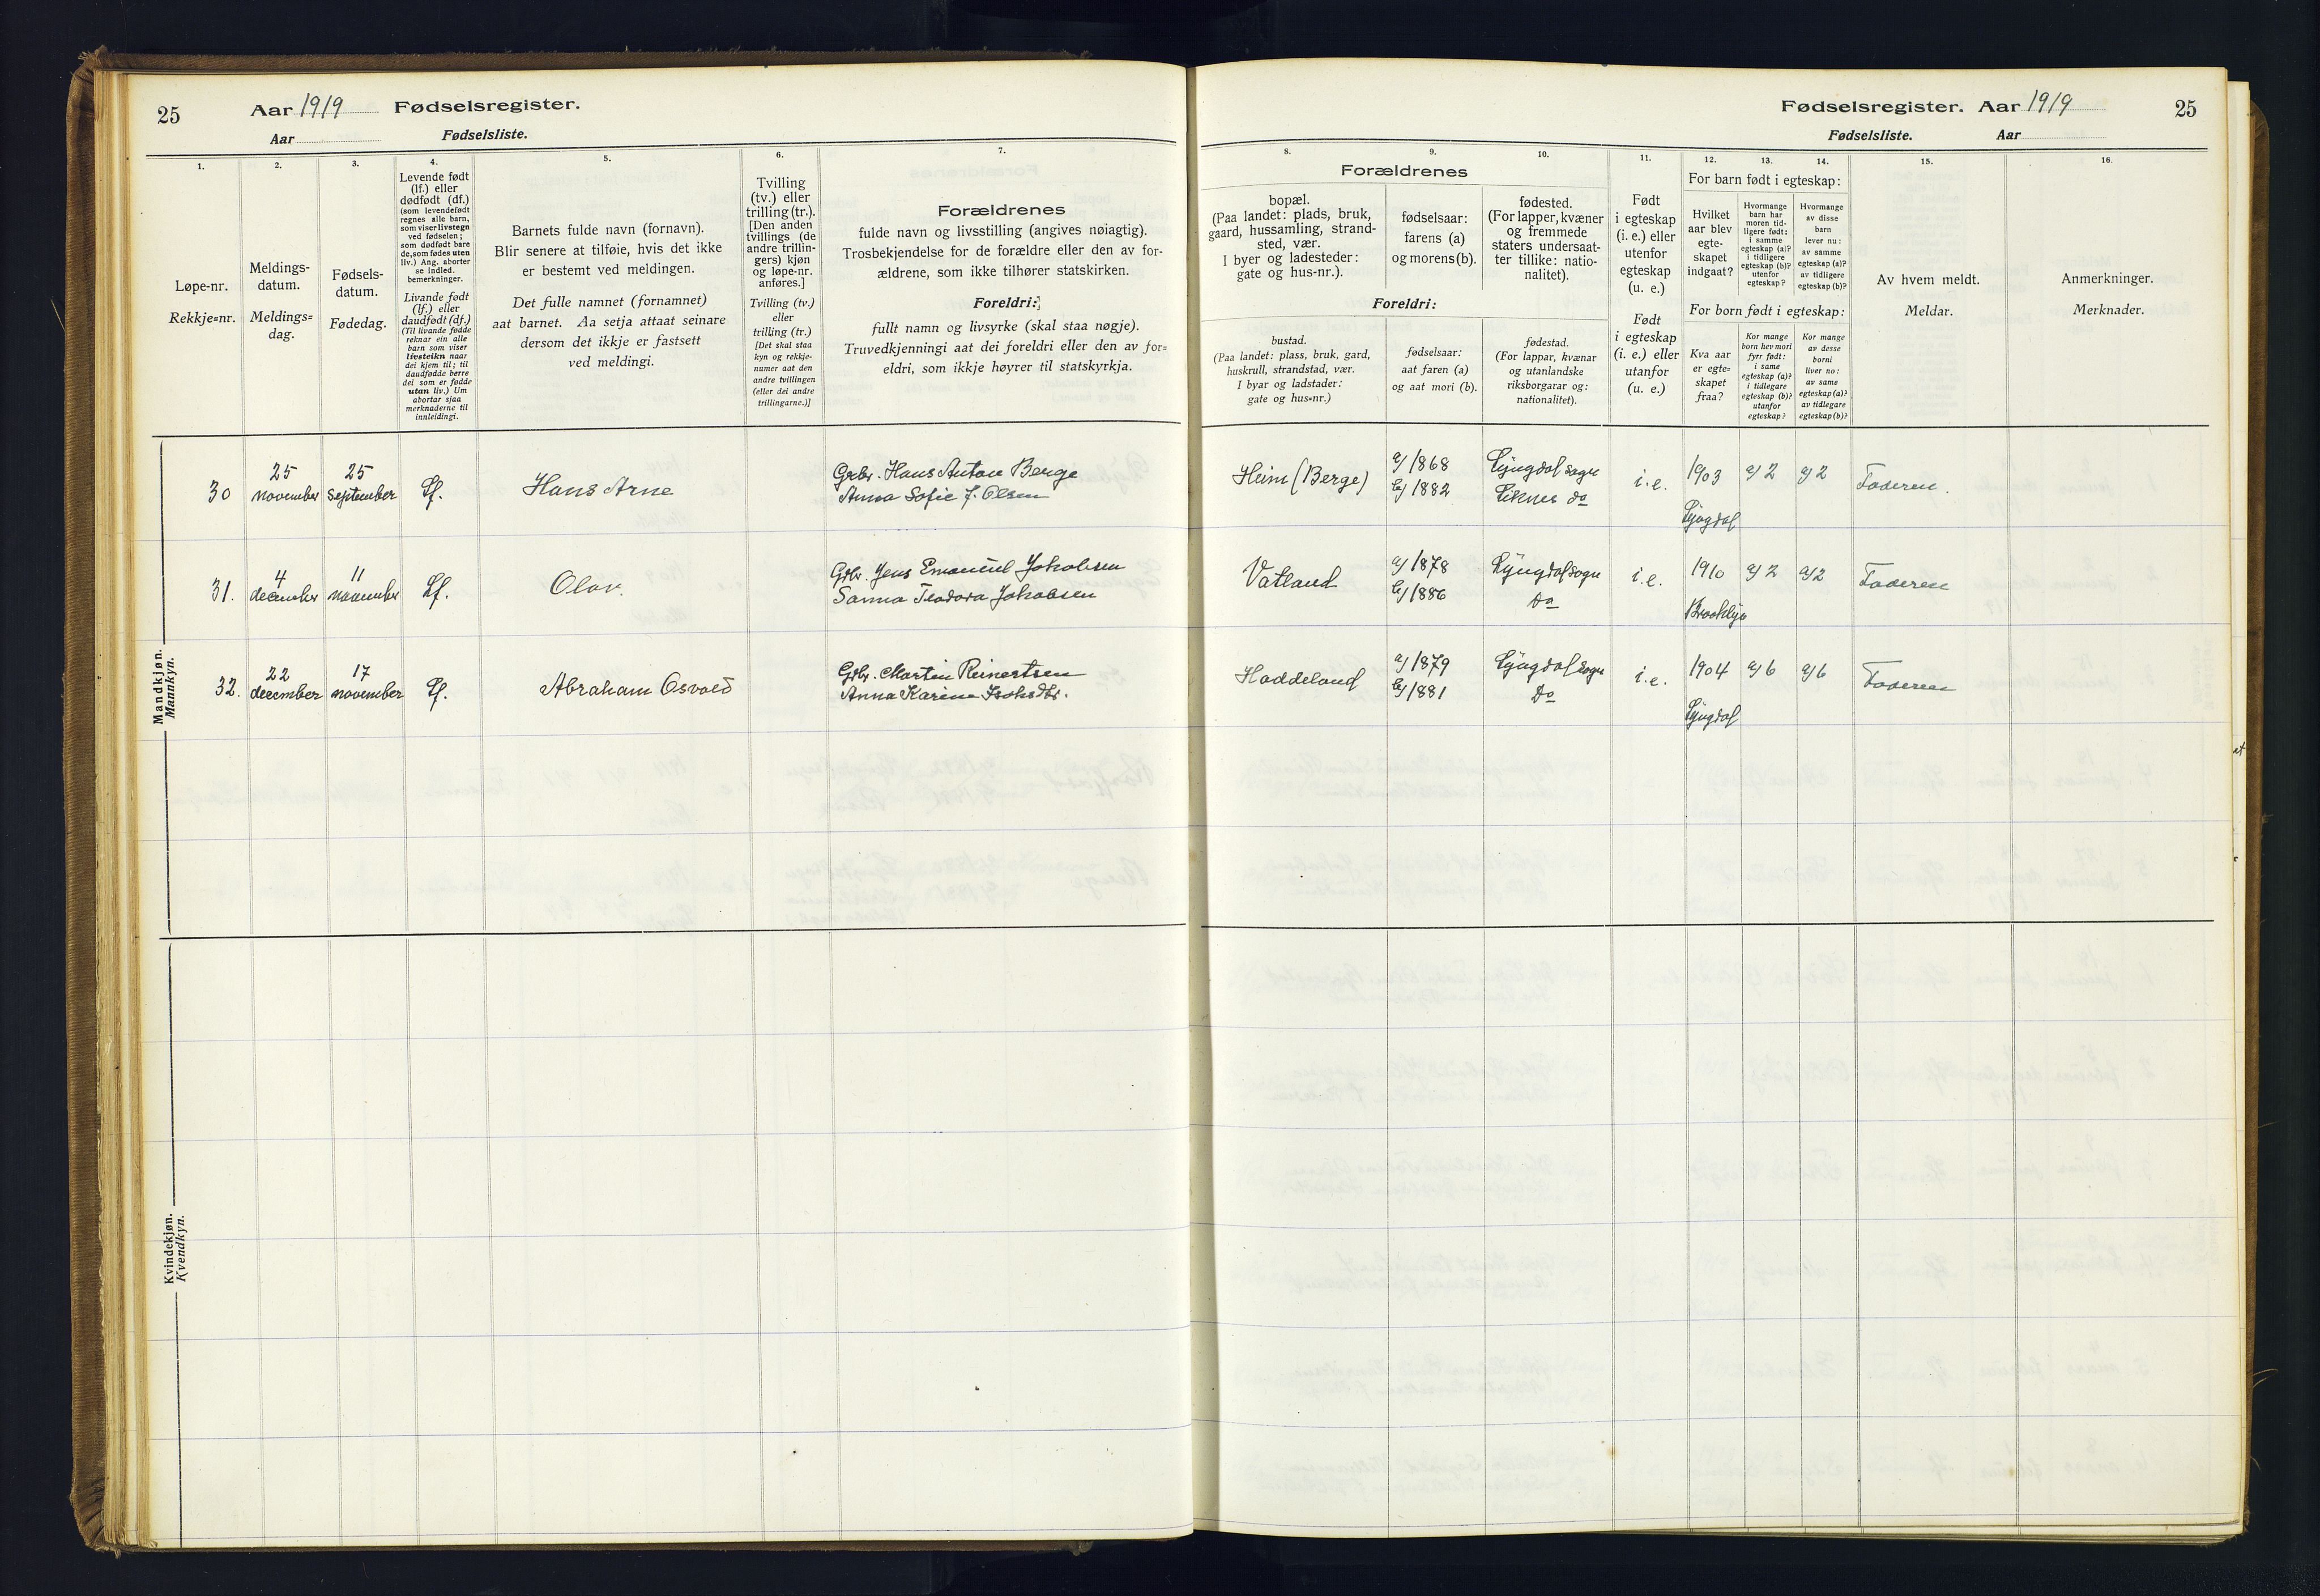 25
Aar 1919 Fødselsregister.
Aar Fødselsliste.
1.
2.
3.
4.
5.
6.
7.
Løpe-nr.
Rekkje=nr.
Meldings-
datum.
Meldings=
dag.
Fødsels-
datum.
Fødedag.
Levende født
(lf.) eller
dødfødt (df.)
(som levendefødt
regnes alle barn,
som viser livstegn
ved fødselen;
som dødfødt bare
de, som fødes uten
liv.) Ang. aborter
se indled.
bemerkninger.
Livande født
(lf.) eller
daudfødt (df.)
(Til livande fødde
reknar ein alle
barn som viser
livsteikn naar
dei kjem til; til
daudfødde berre
dei som er fødde
utan liv.) Um
abortar sjaa
merknaderne til
innleidingi.
Barnets fulde navn (fornavn).
Blir senere at tilføie, hvis det ikke
er bestemt ved meldingen.
Det fulle namnet (fornamnet)
aat barnet. Aa setja attaat seinare
dersom det ikkje er fastsett
ved meldingi.
Tvilling
(tv.) eller
trilling (tr.).
[Den anden
tvillings (de
andre trillin-
gers) kjøn
og løpe-nr.
anføres.]
Tvilling (tv.)
eller
trilling (tr.)
[Det skal staa
kyn og rekkje-
numer aat den
andre tvillingen
(eller dei andre
trillingarne.)]
Forældrenes
fulde navn og livsstilling (angives nøiagtig).
Trosbekjendelse for de forældre eller den av for-
ældrene, som ikke tilhører statskirken.
Foreldri:
fullt namn og livsyrke (skal staa nøgje).
Truvedkjenningi aat dei foreldri eller den av for=
eldri, som ikkje høyrer til statskyrkja.
Mandkjøn.
Mannkyn.
30
25
november
25
september
Lf.
Hans Arne
Grbr. Hans Anton Berge
Anna Sofie f. Olsen
31.
4
december
11
november
Lf.
Olav.
Gdbr. Jens Emanuel Jakobsen
Sanna Teodora Jakobsen
32.
22
december
17
november
Lf.
Abraham Osvald
Gdbr. Martin Reinertsen
Anna Karine
Kvindekjøn.
Kvendkyn.
Fødselsregister. Aar 1919
25
Fødselsliste. Aar
8.
9.
10.
11.
12.
13.
14.
15.
16.
Forældrenes
bopæl.
(Paa landet: plads, bruk,
gaard, hussamling, strand-
sted, vær.
I byer og ladesteder:
gate og hus-nr.).
fødselsaar:
farens (a)
og morens (b).
fødested.
(For lapper, kvæner
og fremmede
staters undersaat-
ter tillike: natio-
nalitet).
Foreldri:
bustad.
(Paa landet: plass, bruk, gard,
huskrull, strandstad, vær.
I byar og ladstader:
gate og hus=nr.)
fødselsaar:
aat faren (a)
og aat mori (b).
fødestad.
(For lappar, kvænar
og utanlandske
riksborgarar og:
nationalitet).
Født
i egteskap
(i. e.) eller
utenfor
egteskap
(u. e.)
Født
i egteskap
(i. e.) eller
utanfor
(u. e.)
For barn født i egteskap:
Hvilket
aar blev
egte-
skapet
indgaat?
Hvormange
barn har
moren tid-
ligere født:
i samme
egteskap (a)?
i tidligere
egteskap (b)?
utenfor
egteskap?
Hvormange
av disse
barn
lever nu:
av samme
egteskap (a)?
av tidligere
egteskap (b)?
For born født i egteskap:
Kva aar
er egte=
skapet
fraa?
Kor mange
born hev mori
fyrr født:
i same
egteskap (a)?
i tidlegare
egteskap (b)?
utanfor
egteskap?
Kor mange
av desse
borni
liver no:
av same
egteskap (a)?
av tidlegare
egteskap (b)?
Av hvem meldt.
Meldar.
Anmerkninger.
Merknader.
Heim (Berge)
a/1868
b/1882
Lyngdal sogn
Liknes do
i.e.
1903
Lyngdal
a/2
a/2
Faderen.
Vatland
a/1878
b/1886
Lyngdal sogn
Do
i.e.
1910
Brooklyn
a/2
a/2
Faderen
Haddeland
a/1879
b/1881
Lyngdal sogn
Do
i.e.
1904
Lyngdal
a/6
a/6
Faderen